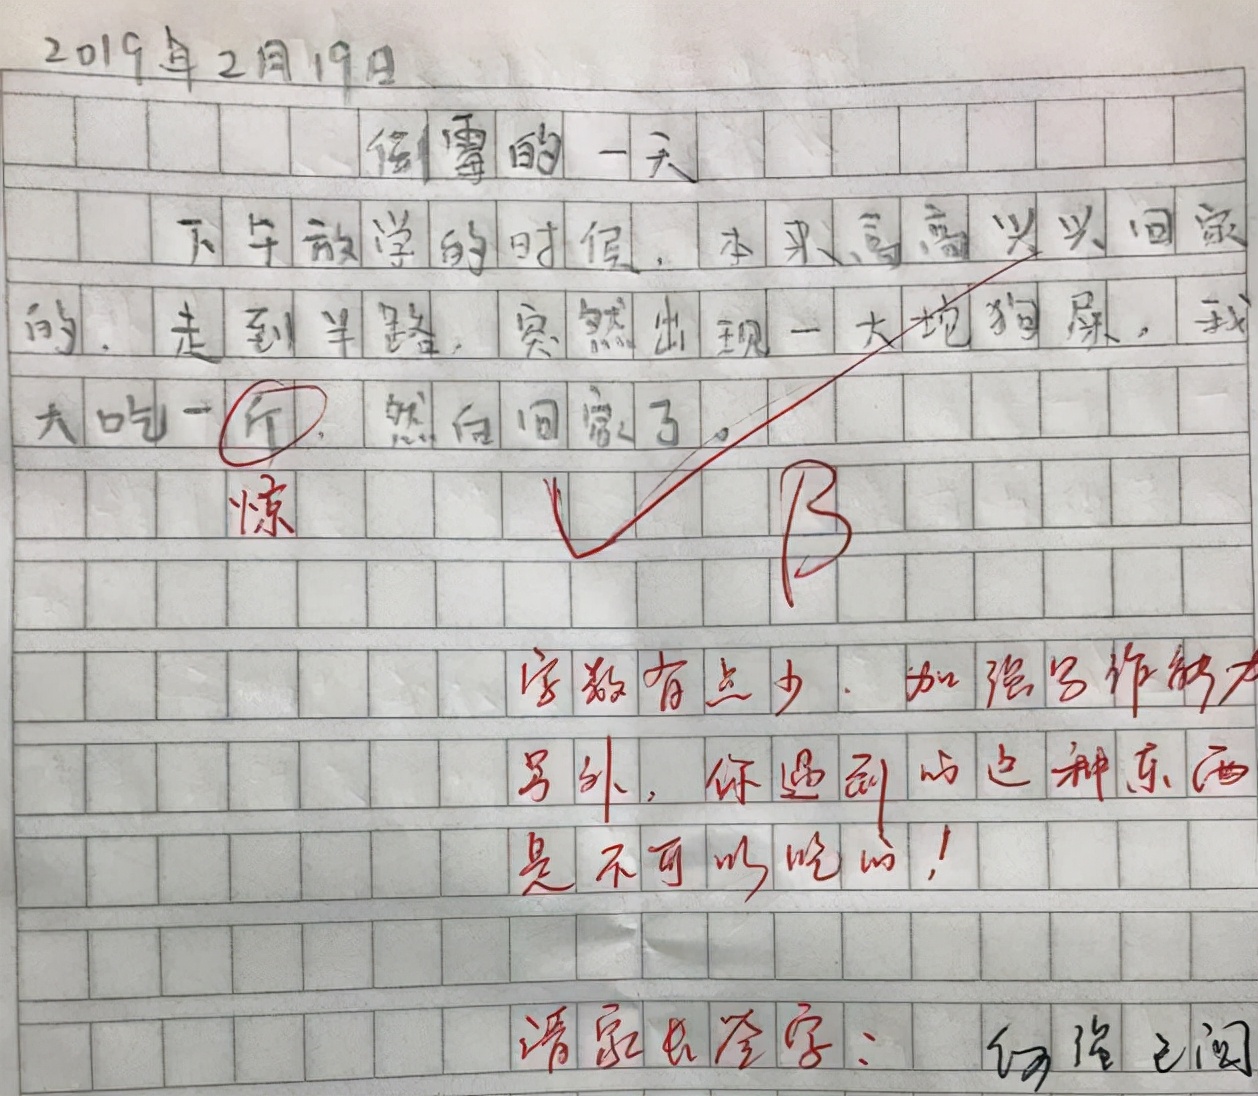 2019年2月19日
倒霉的一天
下午放学的时候，本来高高兴兴回家
的，走到半路，突然出现一大坨狗屎，我
大吃一斤，然后回家了。
惊
B
字数有点少，加强写作能力
另外，你遇到的这种东西
是不可以吃的！
请家长签字：何强已阅